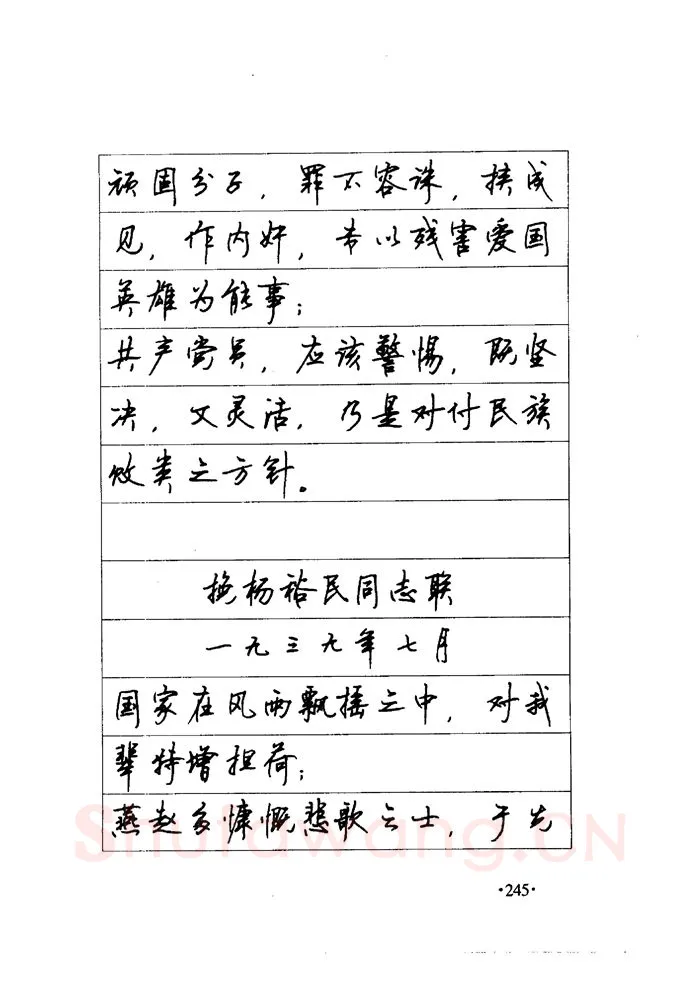 顽固分子，罪不容诛，挟成
见，作内奸，专以残害爱国
英雄为能事；
共产党员，应该警惕，既坚
决，又灵活，乃是对付民族
败类之方针。
挽杨裕民同志联
一九三九年七月
国家在风雨飘摇之中，对我
辈特增担荷；
燕赵多慷慨悲歌之士，于先
Shufawang.CN
·245·